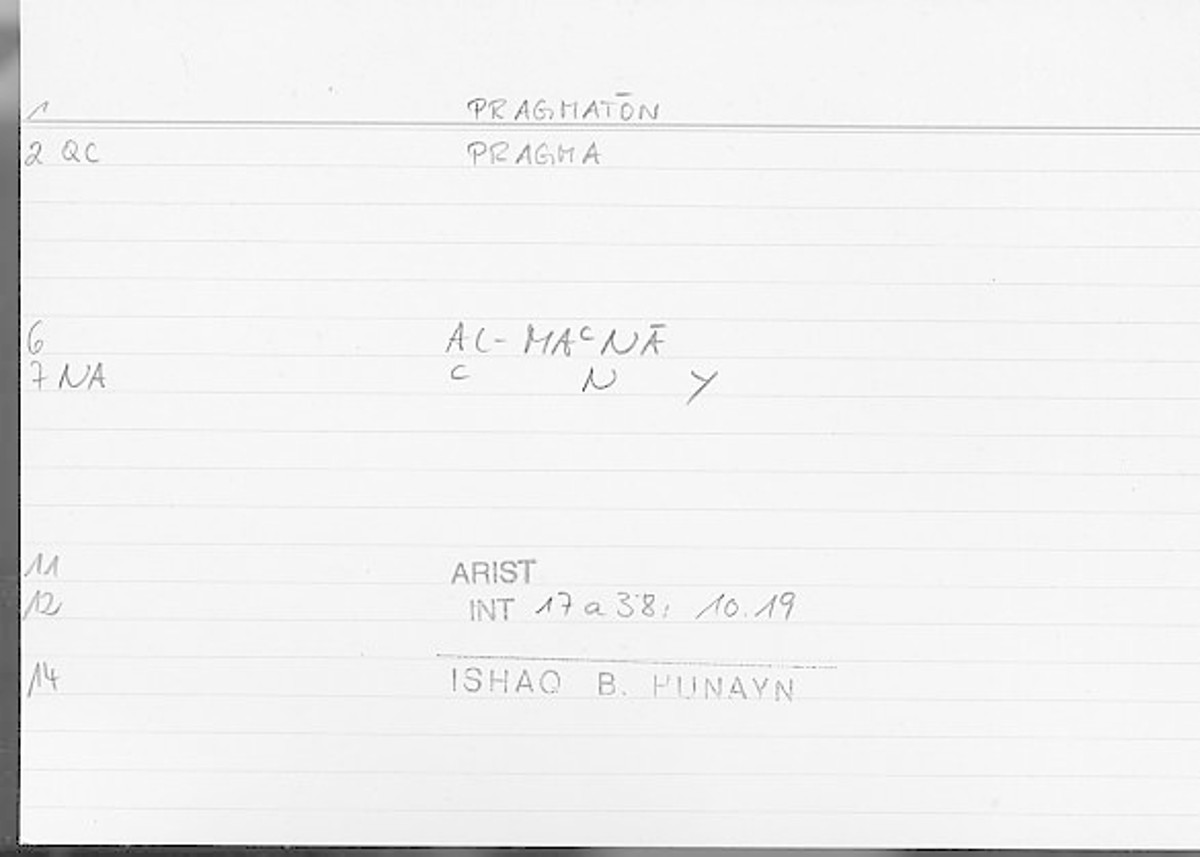 1 PRAGMATŌN
2 QC PRAGMA
6 AL-MAᶜNĀ
7 NA ᶜ N Y
11 ARIST
12 INT 17a38; 10.19
14 ISHAQ B. HUNAYN